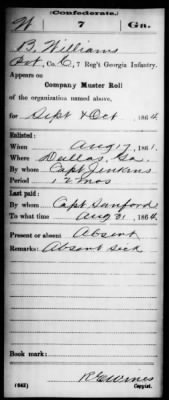 (Confederate.)
W 7 Ga.
B. Williams
Pvt, Co. C, 7 Reg't Georgia Infantry.
Appears on
Company Muster Roll
of the organization named above,
for Sept & Oct, 1864.
Enlisted:
When Aug 17, 1861.
Where Dallas, Ga.
By whom Capt Jenkins
Period 12 mos
Last paid:
By whom Capt Sanford
To what time Aug 31, 1864.
Present or absent Absent
Remarks: Absent sick
Book mark:
(642) Copyist.